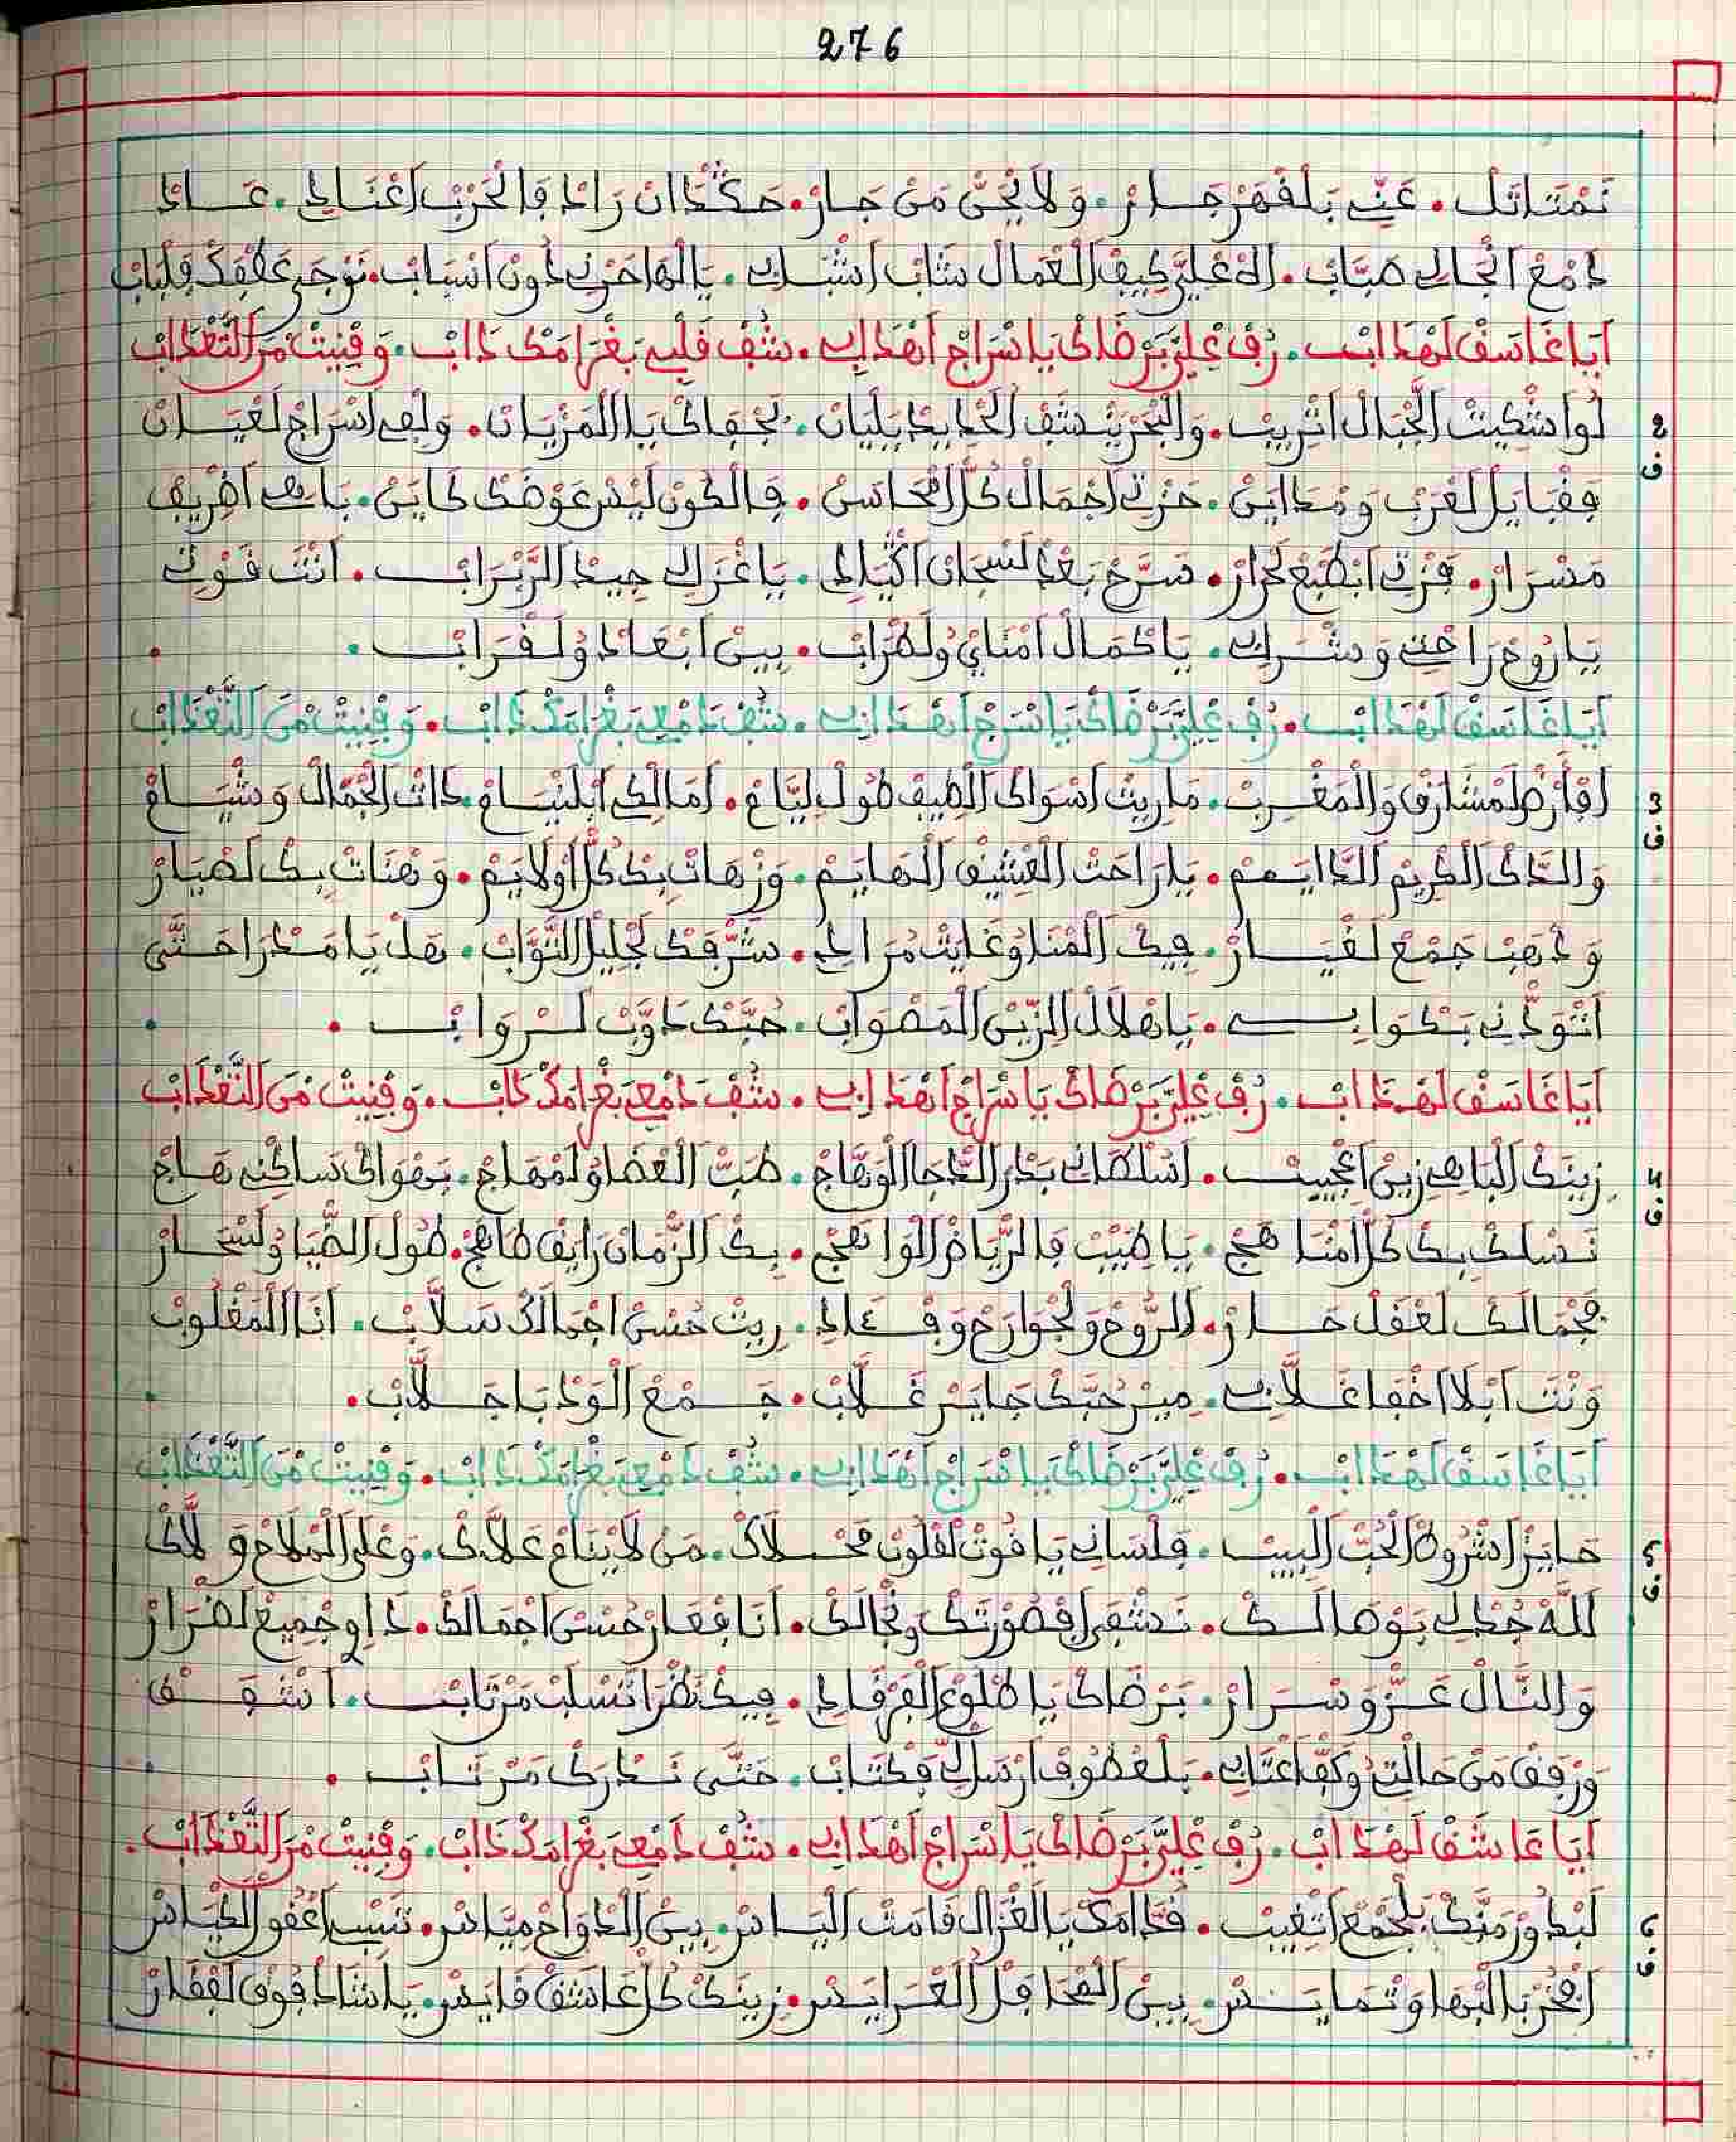 276
نَمْتَاثَلْ. عَنِّي بَلْقْهَرْ جَارْ. وَلَا يْحَنّْ مَنْ جَارْ. هَكْدَا انْ رَادْ فَالْحَرْبْ اعْنَادِي. عَادْ
دَمْعْ انْجَالِي صَبَّابْ. الاهْ عْلِيَّ كِيفْ الْعْمَالْ شَابْ اشْبَابِي. يَالْهَاجَرْنِي دُونْ اسْبَابْ. نَرْجَى عَطْفَكْ
آيَا غَاسَقْ لَهْدَابْ. رُفْ عْلِيَّ بَرْضَاكْ يَا سْرَاجْ اهْدَابِي. شُفْ قَلْبِي بَغْرَامَكْ دَابْ. وَفْنِيتْ مَنْ التَّعْدَابْ
2 لُوا شْكِيتْ الْجْبَالْ اتْرِيبْ. وَالْبَحْرْ يَنْشَفْ الْحْدِيدْ يَلْيَانْ. بَجْفَاكْ يَا الْمَزْيَانْ. وَلْفِي اسْرَاجْ لَعْيَانْ
ف فِقْبَايَلْ لَعْرَبْ وَمْدَايَنْ. حَزْتِي اجْمَالْ كُلّْ امْحَاسَنْ. فَالْكُونْ لَيْسْ عَوْضَكْ كَايَنْ. بَاهِي اظْرِيفْ
مَسْرَارْ. فَزْتِي ابْطَبْعْ لَحْرَارْ. سَرَّحْ بَعْدْ لَشْجَانْ اكْبَادِي. يَا غْزَالِي جِيدْ الزَّرْزَابْ. انْتَ قُوتِي
يَا رُوحْ رَاحْتِي وَشْرَابِي. يَا كْمَالْ امْنَايْ وُلَطْرَابْ. بِينْ ابْعَادْ وُلَقْرَابْ.
آيَا غَاسَقْ لَهْدَابْ. رُفْ عْلِيَّ بَرْضَاكْ يَا سْرَاجْ اهْدَابِي. شُفْ دَمْعِي بَغْرَامَكْ دَابْ. وَفْنِيتْ مَنْ التَّعْدَابْ
3 افْأَرْضْ لَمْشَارَقْ وَالْمَغْرِبْ. مَارِيتْ اسْوَاكْ الطِيفْ طُولْ لِيَّامْ. امَالَكْ ابْلَنْيَامْ. دَاتْ الْجْمَالْ وَشْيَامْ
ف وَالدَّاكْ الْكْرِيمْ الدَّايَمْ. يَا رَاحَتْ الْعْشِيقْ الْهَايَمْ. وَزْهَاتْ بِكْ كُلّْ اوْلَايَمْ. وَهْنَاتْ بِكْ لَصْيَارْ
وَدْهَبْ جَمْعْ لَغْيَارْ. فِيكْ الْمْنَا وْغَايَتْ مُرَادِي. شَرّْفَكْ لَجْلِيلْ التَّوَّابْ. هَلْ يَا مَدْرَا حَتَّى
اتْوَدّْنِي بَكْوَابِي. يَا هْلَالْ الزِّينْ الْمَصْوَابْ. حُبَّكْ دَاوَّبْ لَرْوَابْ.
آيَا غَاسَقْ لَهْدَابْ. رُفْ عْلِيَّ بَرْضَاكْ يَا سْرَاجْ اهْدَابِي. شُفْ دَمْعِي بَغْرَامَكْ دَابْ. وَفْنِيتْ مَنْ التَّعْدَابْ
4 زِينَكْ الْبَاهِي زِينْ اعْجِيبْ. اسُلْطَانِي بَدْرْ الدُّجَا الْوَهَّاجْ. طَبّْ الْعْضَا وُلَمْهَاجْ. بَهْوَاكْ سَاكْنِي هَاجْ
ف نَسْلَكْ بِكْ كُلّْ امْنَاهَجْ. يَا طْبِيبْ فَالرّْيَاضْ الْوَاهَجْ. بِكْ الزّْمَانْ رَايَقْ طَاهَجْ. طُولْ الضّْيَا وُلَسْحَارْ
فَجْمَالَكْ لَعْقَلْ حَارْ. الرُّوحْ وَلَجْوَارَحْ وَفْـعَـادِي. رِيتْ حُسْنْ اجْمَالَكْ سَلَّابْ. انَا الْمَغْلُوبْ
وَنْتَ ابْلَا اخْفَا غَلَّابِي. مِيرْ حُبَّكْ جَايَرْ غَلَّابْ. جَمْعْ الْوَدْبَا جَلَّابْ.
آيَا غَاسَقْ لَهْدَابْ. رُفْ عْلِيَّ بَرْضَاكْ يَا سْرَاجْ اهْدَابِي. شُفْ دَمْعِي بَغْرَامَكْ دَابْ. وَفْنِيتْ مَنْ التَّعْدَابْ
5 حَايَزْ اشْرُوطْ الْحُبّْ الْبِيبْ. فَلْسَانِي يَا قُوتْ لَقْلُوبْ مَحْلَاكْ. مَنْ لَا يْنَامْ عَلَّاكْ. وَعْلَى الْمْلَاحْ وَلَّاكْ
ف اللَّهْ جُدْ لِي بَوْصَالَكْ. نَشْفَى افْصُورْتَكْ وَنْجَالَكْ. أنَا فْعَارْ حُسْنْ اجْمَالَكْ. دَاوِ جْمِيعْ لَضْرَارْ
وَالنَّالْ عَزّْ وَسْرَارْ. بَرْضَاكْ يَا طْلُوعْ الْفَرْقَادِي. فِيكْ نَظْرَا تَسْلَبْ مَرْتَابْ. اشْفَـقْ
وَرْفَقْ مَنْ حَالْتِي وُكَفّْ اعْتَابِي. بَلْعْطُوفْ ارْسَلْ لِي فَكْتَابْ. حَتَّى نَدْرَكْ مَرْتَابْ.
آيَا عَاشَقْ لَهْدَابْ. رُفْ عْلِيَّ بَرْضَاكْ يَا سْرَاجْ اهْدَابِي. شُفْ دَمْعِي بَغْرَامَكْ دَابْ. وَفْنِيتْ مَنْ التَّعْدَابْ.
6 لَبْدُورْ مَنَّكْ بَلْجْمَعْ اتْغِيبْ. قُدَّامَكْ يَا الْغْزَالْ قَامَتْ الْيَاسْ. بِينْ الْدْوَاحْ مِيَّاسْ. تَسْبِي اعْقُو الْكْيَاسْ
ف افْخُرْ بَالْبْهَا وَتْمَايَسْ. بِينْ الْمْحَافَلْ الْعْرَايَسْ. زِينَكْ كُلّْ عَاشَقْ قَايَسْ. يَا شَادْ فُوقْ لَقْفَارْ